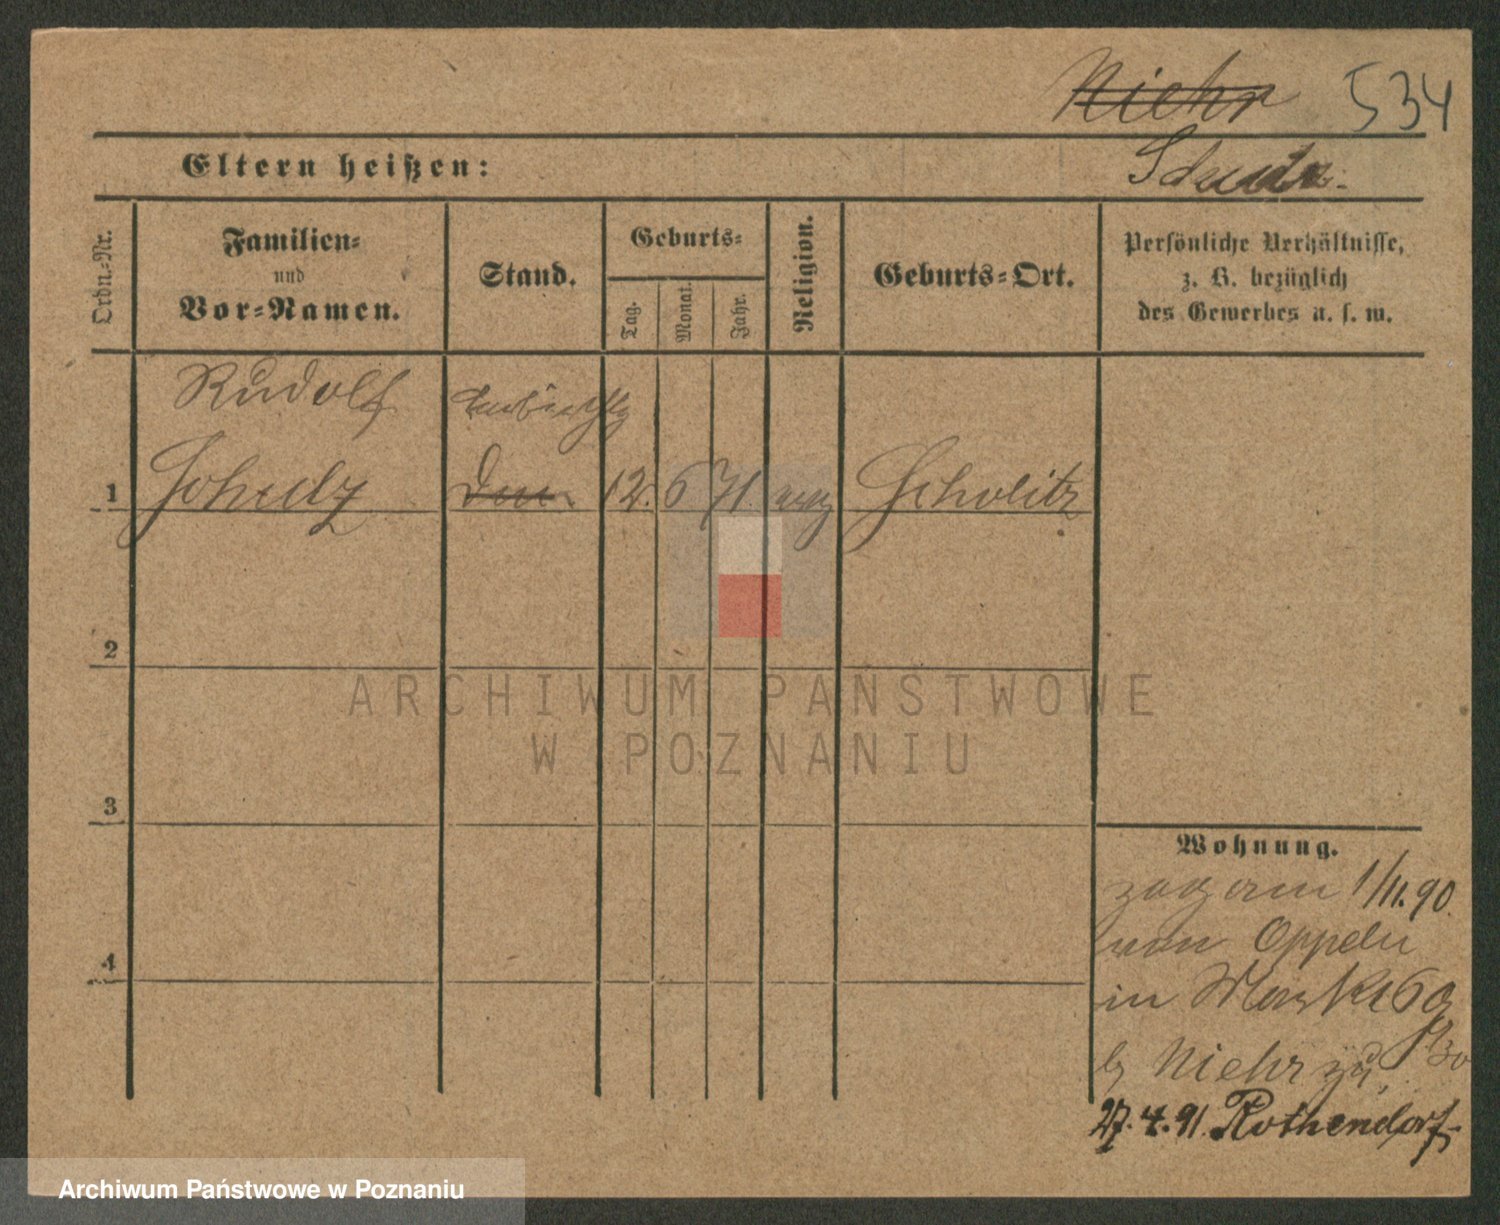 Niehr 534
Eltern heißen:
Ordn.-Nr.
Familien-
und
Vor-Namen.
Stand.
Geburts-
Tag.
Monat.
Jahr.
Religion.
Geburts-Ort.
Persönliche Verhältnisse,
z. B. bezüglich
des Gewerbes u. s. w.
Rudolf
1 12. 6 71.
2
3
4
Wohnung.
zog am 1/11. 90.
von Oppeln
in Markt 69
b Niehr zu
27. 4. 91. Rothendorf
ARCHIWUM PAŃSTWOWE
W POZNANIU
Archiwum Państwowe w Poznaniu